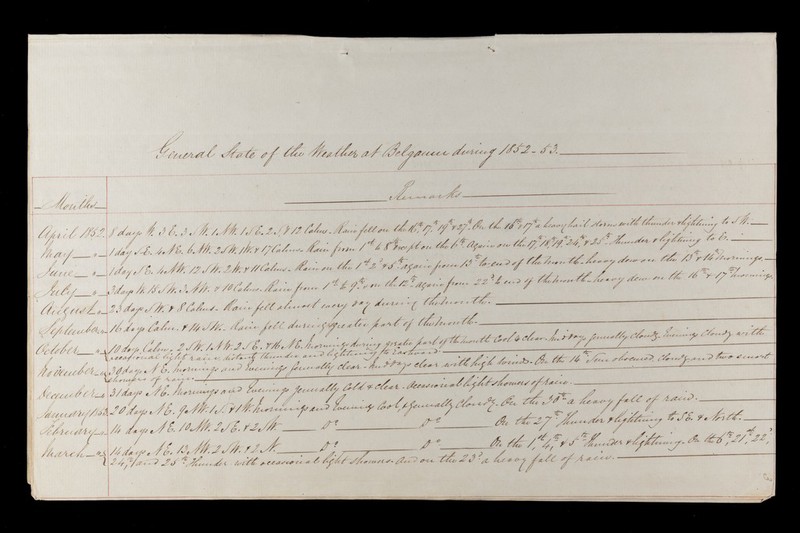 General State of the Weather at Belgaum during 1852-53.
Months
Remarks
April 1852. 8 days W. 3 E. 3 N. 1 NW. 1 S.E. 2 S. & 12 Calms. Rain fell on the 16th, 17th, 19th & 27th. On the 16th & 17th a heavy hail storm with thunder & lightning to S.W.
May 1 day S.E. 4 NE. 6 NW. 2 SW. 1 W. & 17 Calms. Rain from 1st to 8th except on the 6th. Again on the 17th, 18th, 19th, 24th & 25th. Thunder & lightning to E.
June 1 day S.E. 4 NW. 12 S.W. 2 W. & 11 Calms. Rain on the 1st, 2d & 5th again from 13th to end of the month. heavy dew on the 13th & 16th mornings.
July 3 days W. 15 S.W. 3 NW. & 10 Calms. Rain from 1st to 9th & on the 12th again from 22d to end of the month. heavy dew on the 16th & 17th mornings
August 23 days S.W. & 8 Calms. Rain fell almost every day during the month.
September 16 days Calms. & 14 S.W. Rain fell during greater part of the month.
October 10 days Calms. 2 S.W. 1 N.W. 2 S.E. & 16 N.E. mornings during greater part of the month Cool & clear. Mid day generally cloudy. Evenings cloudy with
occasional light rain, distant thunder and lightning to Eastward
November 29 days N.E. mornings and Evenings generally clear. Mid day clear with high winds. On the 14th observed cloudy and two smart
showers of rain
December 31 days N.E. mornings and Evenings generally Cold & clear. Occasional light showers of rain.
January 1853 20 days N.E. 9 NW. 1 S. & 1 W. mornings and Evenings Cool & generally Cloudy. On the 30th a heavy fall of rain.
February 14 days N.E. 10 NW. 2 S.E. & 2 SW. Do Do On the 27th Thunder & lightning to S.E. & North.
March 14 days N.E. 13 NW. 2 SW. & 2 N. Do Do On the 1st, 4th & 5th Thunder & lightning. On the 6th, 21st, 22d,
24th and 25th Thunder with occasional light showers and on the 23d a heavy fall of rain.